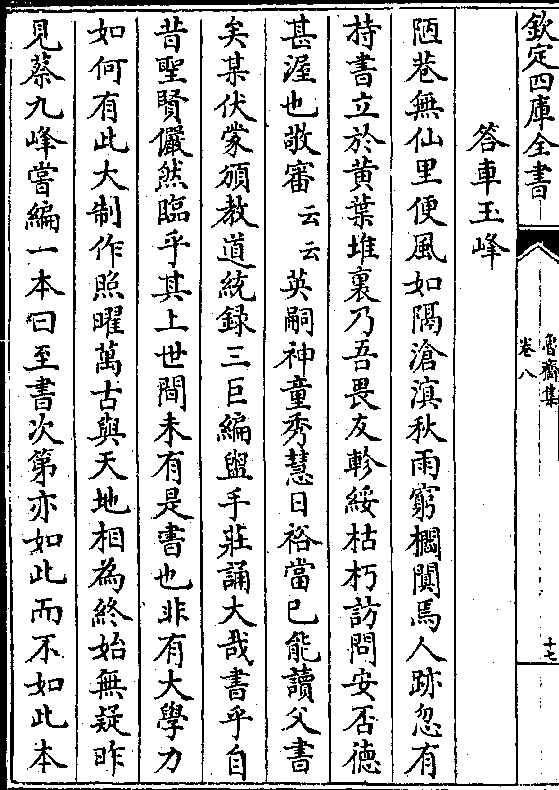 欽定四庫全書
魯齋集
卷八
十七
答車玉峰
陋巷無仙里便風如隔滄溟秋雨窮櫩闃焉人跡忽有
持書立於黃葉堆裏乃吾畏友軫綏枯朽訪問安否德
甚渥也敬審云云英嗣神童秀慧日裕當已能讀父書
矣某伏蒙頒教道統録三巨編盥手莊誦大哉書乎自
昔聖賢儼然臨乎其上世間未有是書也非有大學力
如何有此大制作照曜萬古與天地相為終始無疑昨
見蔡九峰嘗編一本曰至書次第亦如此而不如此本